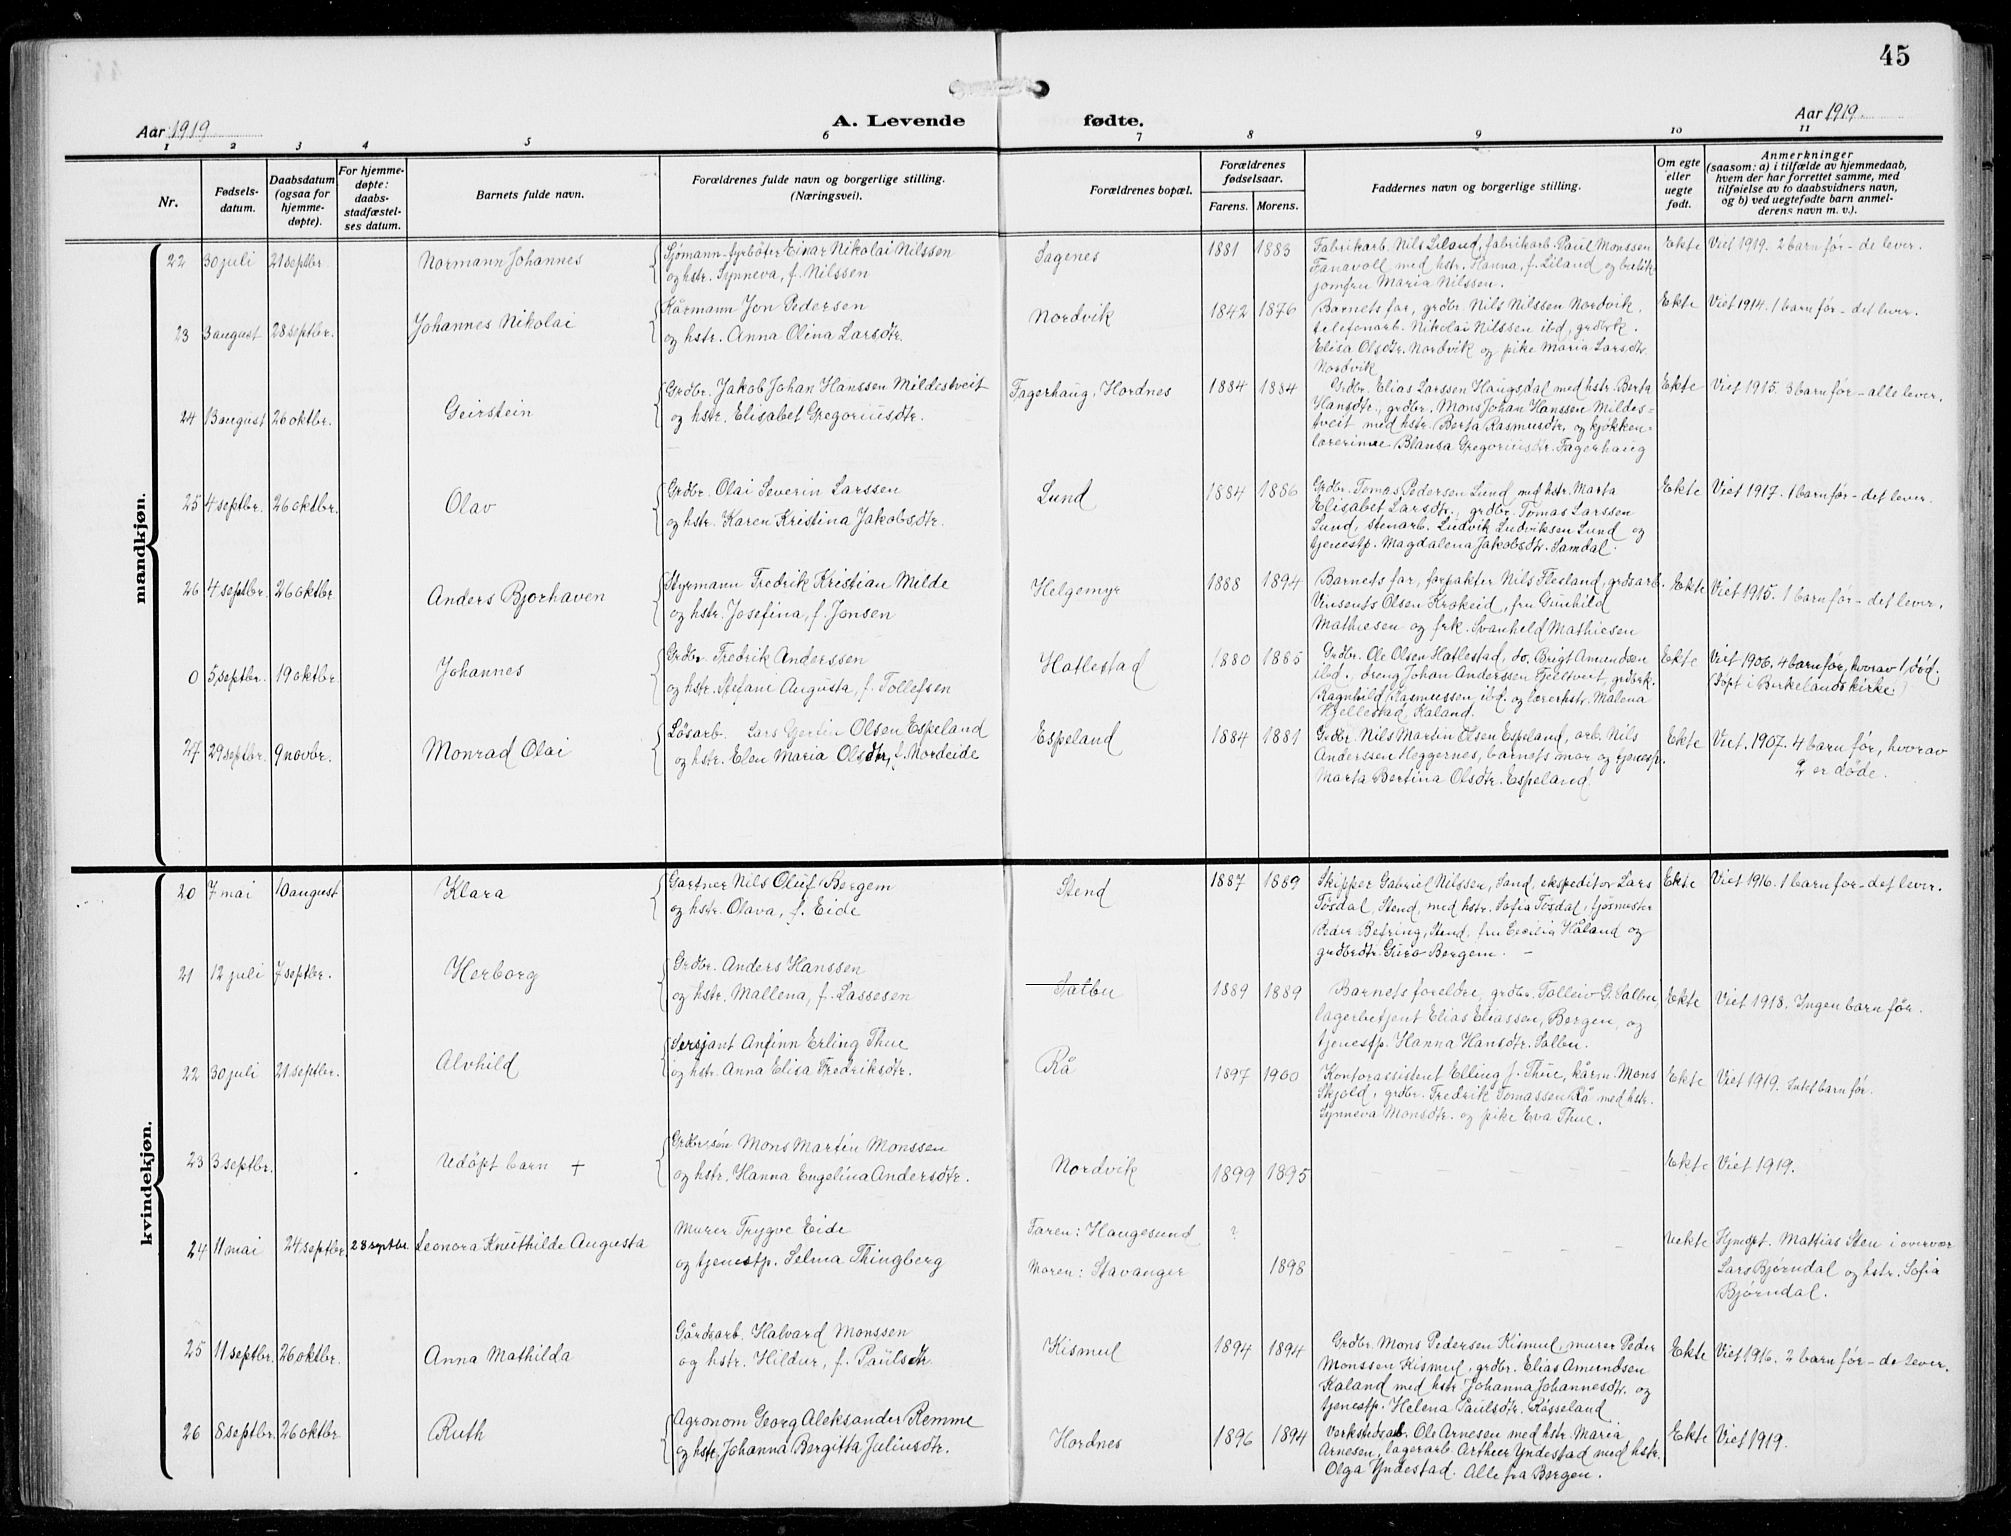 45
Aar 1919
A. Levende fødte.
Aar 1919
1 2 3 4 5 6 7 8 9 10 11
Nr.
Fødsels-
datum.
Daabsdatum
(ogsaa for
hjemme-
døpte).
For hjemme-
døpte:
daabs-
stadfæstel-
ses datum.
Barnets fulde navn.
Forældrenes fulde navn og borgerlige stilling.
(Næringsvei).
Forældrenes bopæl.
Forældrenes
fødselsaar.
Farens. Morens.
Faddernes navn og borgerlige stilling.
Om egte
eller
uegte
født.
Anmerkninger
(saasom: a) i tilfælde av hjemmedaab,
hvem der har forrettet samme, med
tilføielse av to daabsvidners navn,
og b) ved uegtefødte barn anmel-
derens navn m. v.).
mandkjøn.
22 30 juli 21 septbr. Normann Johannes
Sjømann-fyrbøter Einar Nikolai Nilssen
og hstr. Synneva, f. Nilssen
Sagenes 1881 1883
Fabrikarb. Nils Liland, fabrikarb. Paul Monssen
Fanavoll med hstr. Hanna, f. Liland og butik-
jomfru Maria Nilssen.
Ekte Viet 1919. 2 barn før - de lever.
23 3 august 28 septbr. Johannes Nikolai
Kårmann Jon Pedersen
og hstr. Anna Olina Larsdtr.
Nordvik 1842 1876
Barnets far, grdbr. Nils Nilssen Nordvik,
telefonarb. Nikolai Nilssen ibd, grdbrk.
Elisa Olsdtr. Nordvik og pike Maria Larsdtr.
Nordvik
Ekte Viet 1914. 1 barn før - det lever.
24 13 august 26 oktbr. Geirstein
Grdbr. Jakob Johan Hanssen Mildestveit
og hstr. Elisabet Gregoriusdtr.
Fagerhaug, Hordnes 1884 1884
Grdbr. Elias Larssen Haugsdal med hstr. Berta
Hansdtr., grdbr. Mons Johan Hanssen Mildes-
tveit med hstr. Berta Rasmusdtr. og kjøkken-
lærerinne Blansa Gregoriusdtr. Fagerhaug
Ekte Viet 1915. 3 barn før - alle lever.
25 4 septbr. 26 oktbr. Olav
Grdbr. Olai Severin Larssen
og hstr. Karen Kristina Jakobsdtr.
Lund 1884 1886
Grdbr. Tomas Pedersen Lund med hstr. Marta
Elisabet Larsdtr., grdbr. Tomas Larssen
Lund, stenarb. Ludvik Ludviksen Lund og
tjenestp. Magdalena Jakobsdtr. Samdal.
Ekte Viet 1917. 1 barn før - det lever.
26 4 septbr. 26 oktbr. Anders Bjorhaven
Styrmann Fredrik Kristian Milde
og hstr. Josefina, f. Jonsen
Helgemyr 1888 1894
Barnets far, forpakter Nils Flesland, grdsarb.
Vinsents Olsen Krokeid, fru Gunhild
Mathiesen og frk. Svanheld Mathiesen
Ekte Viet 1915. 1 barn før - det lever.
0 5 septbr. 19 oktbr. Johannes
Grdbr. Fredrik Anderssen
og hstr. Stefani Augusta, f. Tollefsen
Hatlestad 1880 1885
Grdbr. Ole Olsen Hatlestad, do. Brigt Amundsen
ibd., dreng Johan Anderssen Fjellstveit, grdbrk.
Ragnhild Rasmussen, ibd. og lærerhstr. Malena
Hjellestad, Kaland.
Ekte Viet 1906. 4 barn før, hvorav 1 død.
(Døpt i Birkelands kirke.)
27 29 septbr. 9 novbr. Monrad Olai
Løsarb. Lars Gertin Olsen Espeland
og hstr. Elen Maria Olsdtr., f. Nordeide
Espeland 1884 1881
Grdbr. Nils Martin Olsen Espeland, arb. Nils
Anderssen Heggernes, barnets mor og tjenestp.
Marta Bertina Olsdtr. Espeland.
Ekte Viet. 1907. 4 barn før, hvorav
2 er døde.
kvindekjøn.
20 7 mai 10 august Klara
Gartner Nils Oluf Bergem
og hstr. Olava, f. Eide
Stend 1887 1889
Skipper Gabriel Nilssen, Sand, ekspeditor Lars
Tøsdal, Stend, med hstr. Sofia Tøsdal, fjøsmester
Peder Befring, Stend, fru Cecilia Håland og
grdbrdtr. Guro Bergem. -
Ekte Viet 1916. 1 barn før - det lever.
21 12 juli 7 septbr. Herborg
Grdbr. Anders Hanssen
og hstr. Mallena, f. Lassesen
Salbu 1889 1889
Barnets foreldre, grdbr. Tolleiv G. Salbu,
lagerbetjent Elias Eliassen, Bergen, og
tjenestp. Hanna Hansdtr. Salbu.
Ekte Viet 1918. Ingen barn før.
22 30 juli 21 septbr. Alvhild
Sersjant Anfinn Erling Thue
og hstr. Anna Elisa Fredriksdtr.
Rå 1897 1900
Kontorassistent Elling J. Thue, kårm. Mons
Skjold, grdbr. Fredrik Tomassen Rå med hstr.
Synneva Monsdtr. og pike Eva Thue.
Ekte Viet 1919. Intet barn før.
23 3 septbr. Udøpt barn +
Grdbr.søn Mons Martin Monssen
og hstr. Hanna Engelina Andersdtr.
Nordvik 1899 1895
- - - - -
Ekte Viet 1919.
24 11 mai 24 septbr. 28 septbr. Leonora Knuthilde Augusta
Murer Trygve Eide
og tjenestp. Selma Thingberg
Faren: Haugesund ?
Moren: Stavanger 1898
- - - - -
Uekte Hjmdpt. Mattias Sten i overvær
Lars Bjørndal og hstr. Sofia
Bjørndal.
25 11 septbr. 26 oktbr. Anna Mathilda
Gårdsarb. Halvard Monssen
og hstr. Hildur, f. Paulsdtr.
Kismul 1894 1894
Grdbr. Mons Pedersen Kismul, murer Peder
Monssen Kismul, grdbr. Elias Amundsen
Kaland med hstr Johanna Johannesdtr. og
tjenestp. Helena Paulsdtr. Røsseland
Ekte Viet 1916. 2 barn før - de lever.
26 8 septbr. 26 oktbr. Ruth
Agronom Georg Aleksander Remme
og hstr. Johanna Bergitta Juliusdtr.
Hordnes 1896 1894
Verkstedsarb. Ole Arnesen med hstr. Maria
Arnesen, lagerarb. Arthur Yndestad med hstr.
Olga Yndestad. Alle fra Bergen.
Ekte Viet 1919.